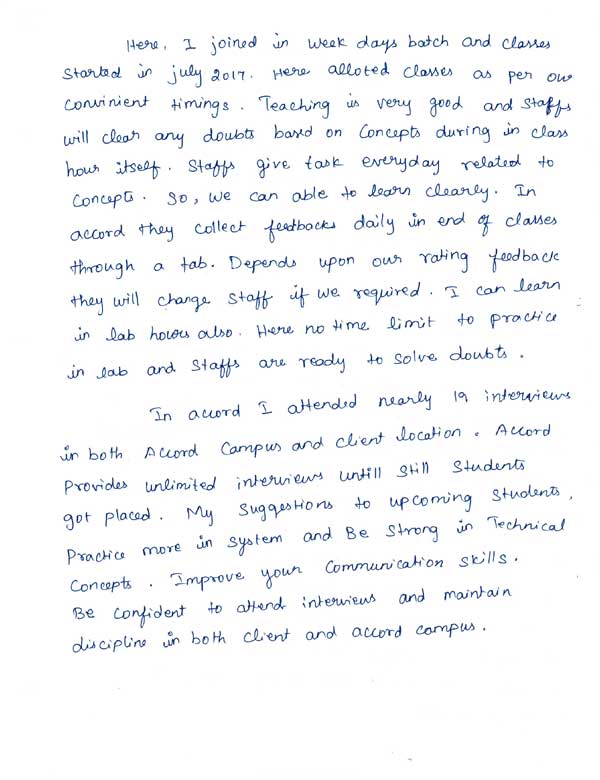 Here, I joined in week days batch and classes
Started in july 2017. Here alloted classes as per our
convinient timings. Teaching is very good and staffs
will clear any doubts based on Concepts during in class
hour itself. Staffs give task everyday related to
Concepts. So, we can able to learn clearly. In
accord they collect feedbacks daily in end of classes
through a tab. Depends upon our rating feedback
they will change staff if we required. I can learn
in lab hours also. Here no time limit to practice
in lab and staffs are ready to solve doubts.
In accord I attended nearly 19 interviews
in both Accord Campus and client location. Accord
Provides unlimited interviews untill still students
got placed. My Suggestions to upcoming students,
Practice more in system and Be Strong in Technical
Concepts. Improve your Communication skills.
Be confident to attend interviews and maintain
discipline in both client and accord campus.